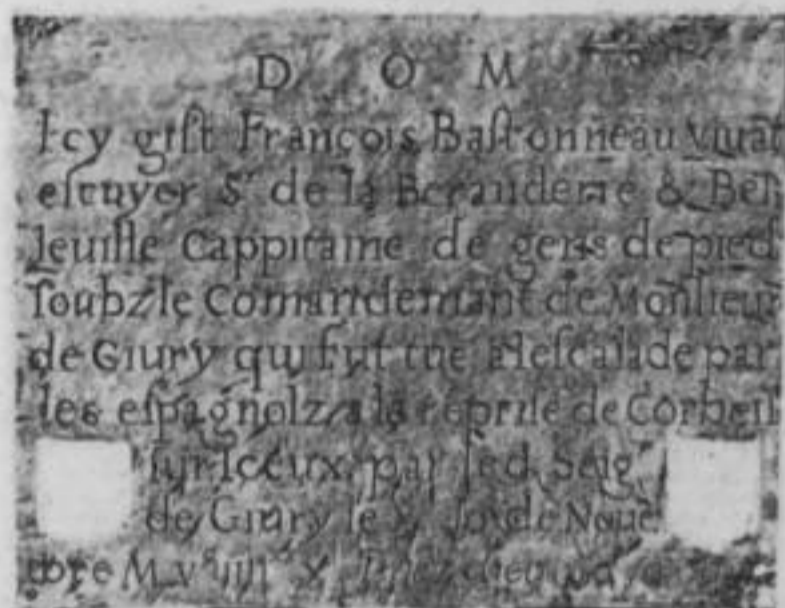 D O M
Icy gist François Bastonneau vivāt
escuyer Sr de la Berauderie & Bel
leuille Cappitaine de gens de pied
soubz le Comandemant de Monsieur
de Giury qui fut tue a lescalade par
les espagnolz a la reprise de Corbeil
sur Iceux par led Seigr
de Giury le x Jor de Nouē
bre M Vc IIIIxx X Priez dieu